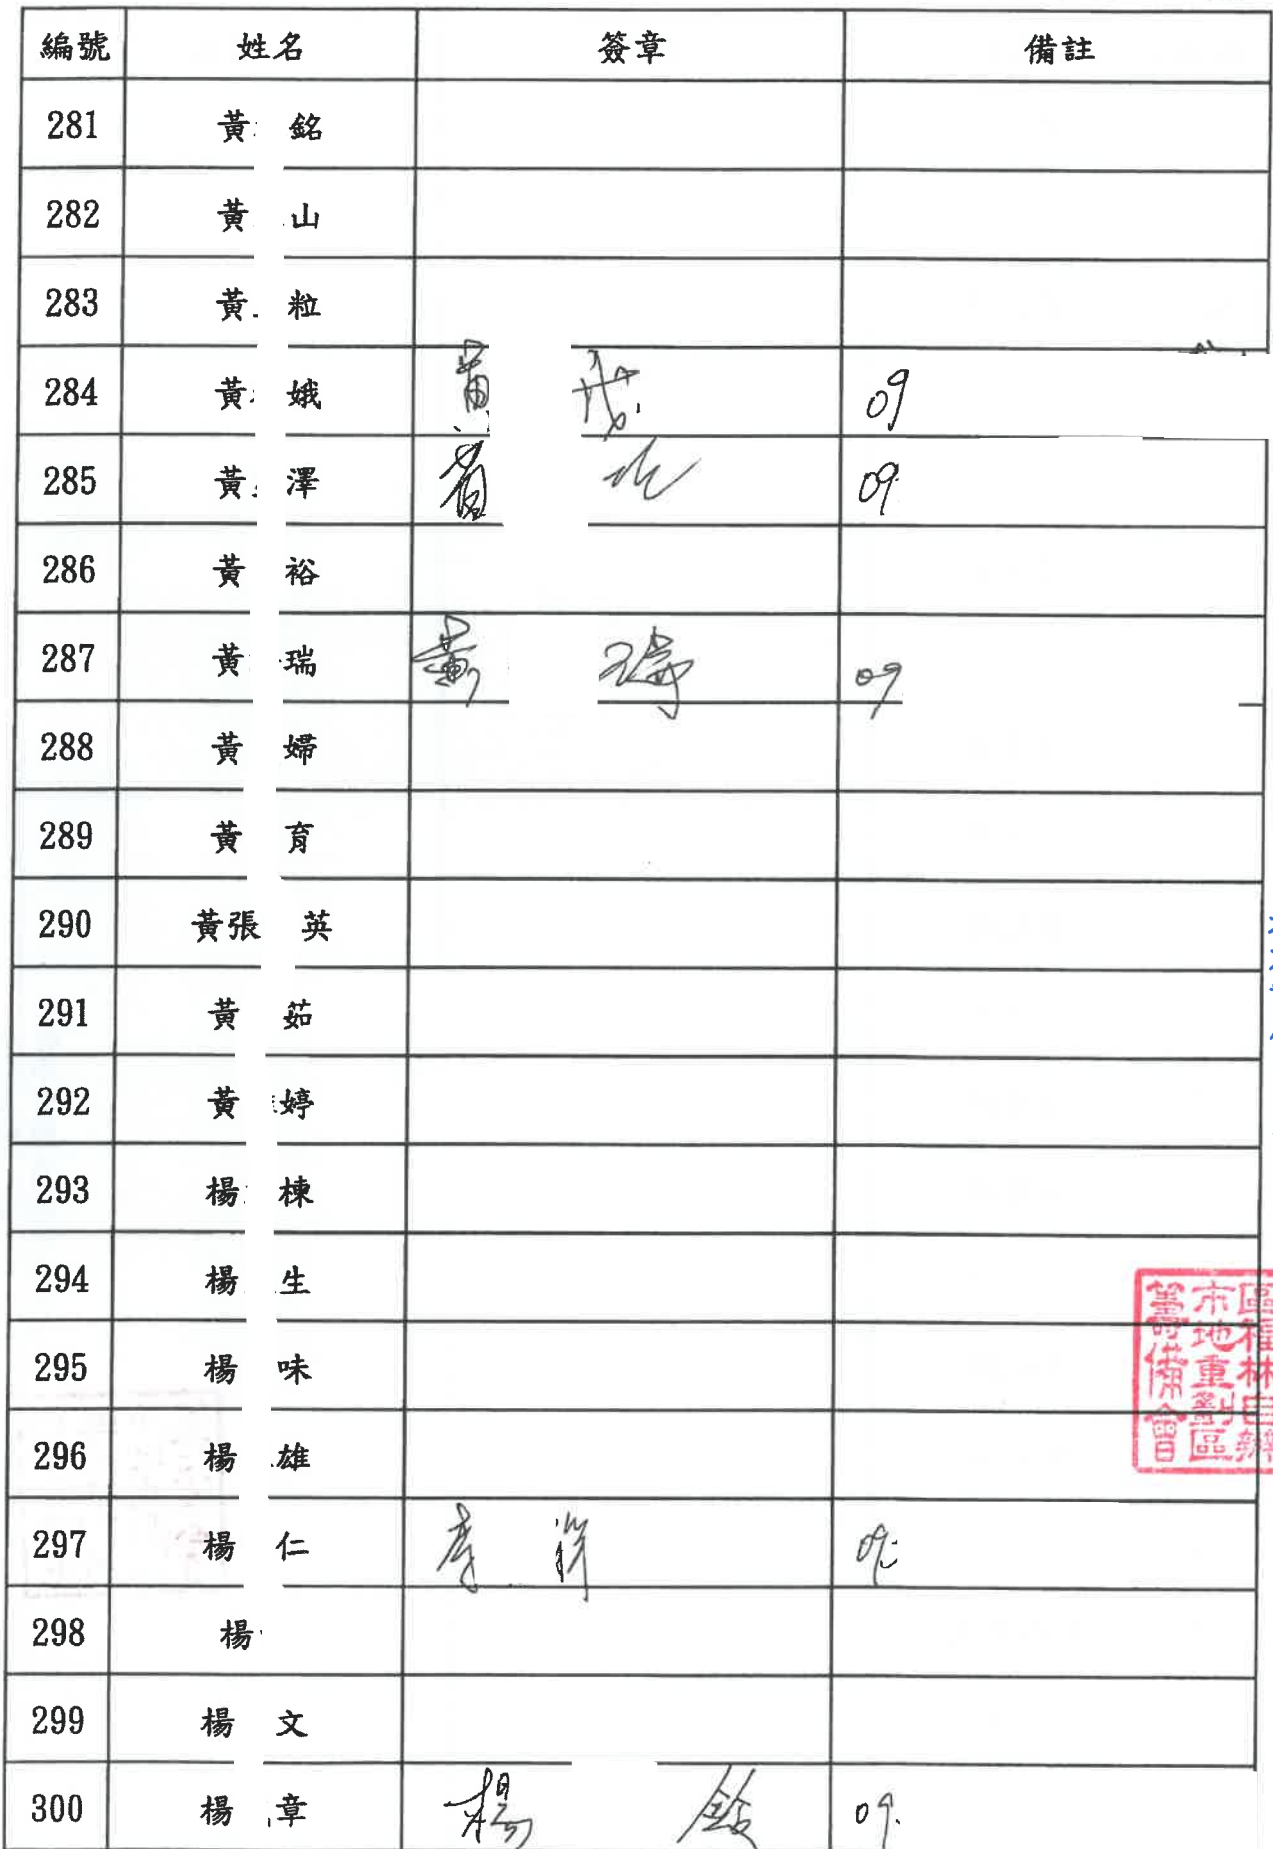 編號 姓名 簽章 備註
281 黃 銘
282 黃 山
283 黃 粒
284 黃 娥 黃 09
285 黃 澤 09
286 黃 裕
287 黃 瑞 黃 瑞 09
288 黃 婦
289 黃 育
290 黃張 英
291 黃 茹
292 黃 婷
293 楊 棟
294 楊 生
295 楊 味
296 楊 雄
297 楊 仁 09
298 楊
299 楊 文
300 楊 章 楊 09
區福林自辦
市地重劃區
籌備會